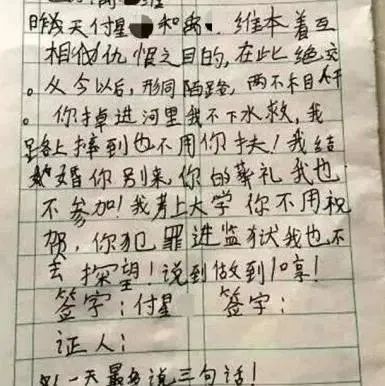 昨天付星 和 维本着互
相仇恨之目的,在此绝交
。从今以后,形同陌路,两不相干
。你掉进河里我不下水救,我
路上摔到也不用你扶!我结
婚你别来,你的葬礼我也
不参加!我考上大学你不用祝
贺,你犯罪进监狱我也不
去探望!说到做到10享!
签字:付星 签字:
证人:
一天最多说三句话!